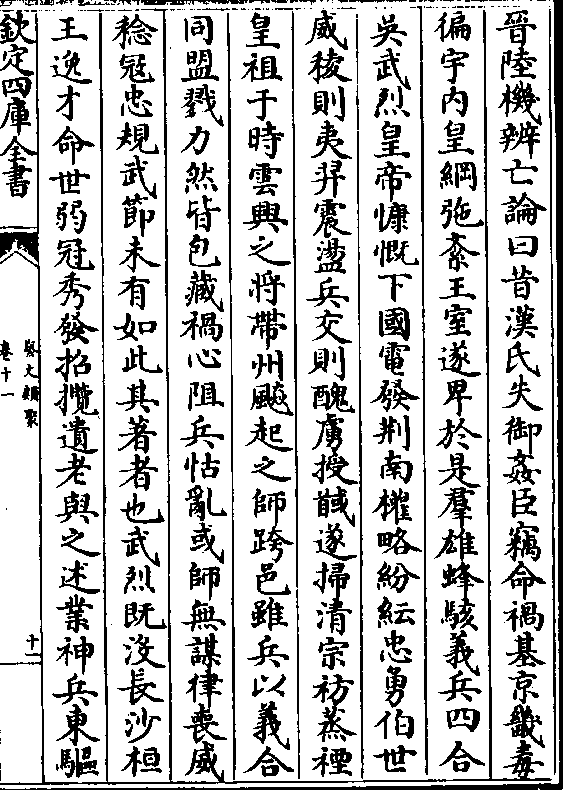 晉陸機辨亡論曰昔漢氏失御姦臣竊命禍基京畿毒
徧宇内皇綱弛紊王室遂卑於是羣雄蜂駭義兵四合
吳武烈皇帝慷慨下國電發荆南權略紛紜忠勇伯世
威稜則夷羿震盪兵交則醜虜授馘遂掃清宗祊蒸禋
皇祖于時雲興之將帶州飈起之師跨邑雖兵以義合
同盟戮力然皆包藏禍心阻兵怙亂或師無謀律喪威
稔冦忠規武節未有如此其著者也武烈既没長沙桓
王逸才命世弱冠秀發招攬遺老與之述業神兵東驅
欽定四庫全書
藝文類聚
卷十一
十一